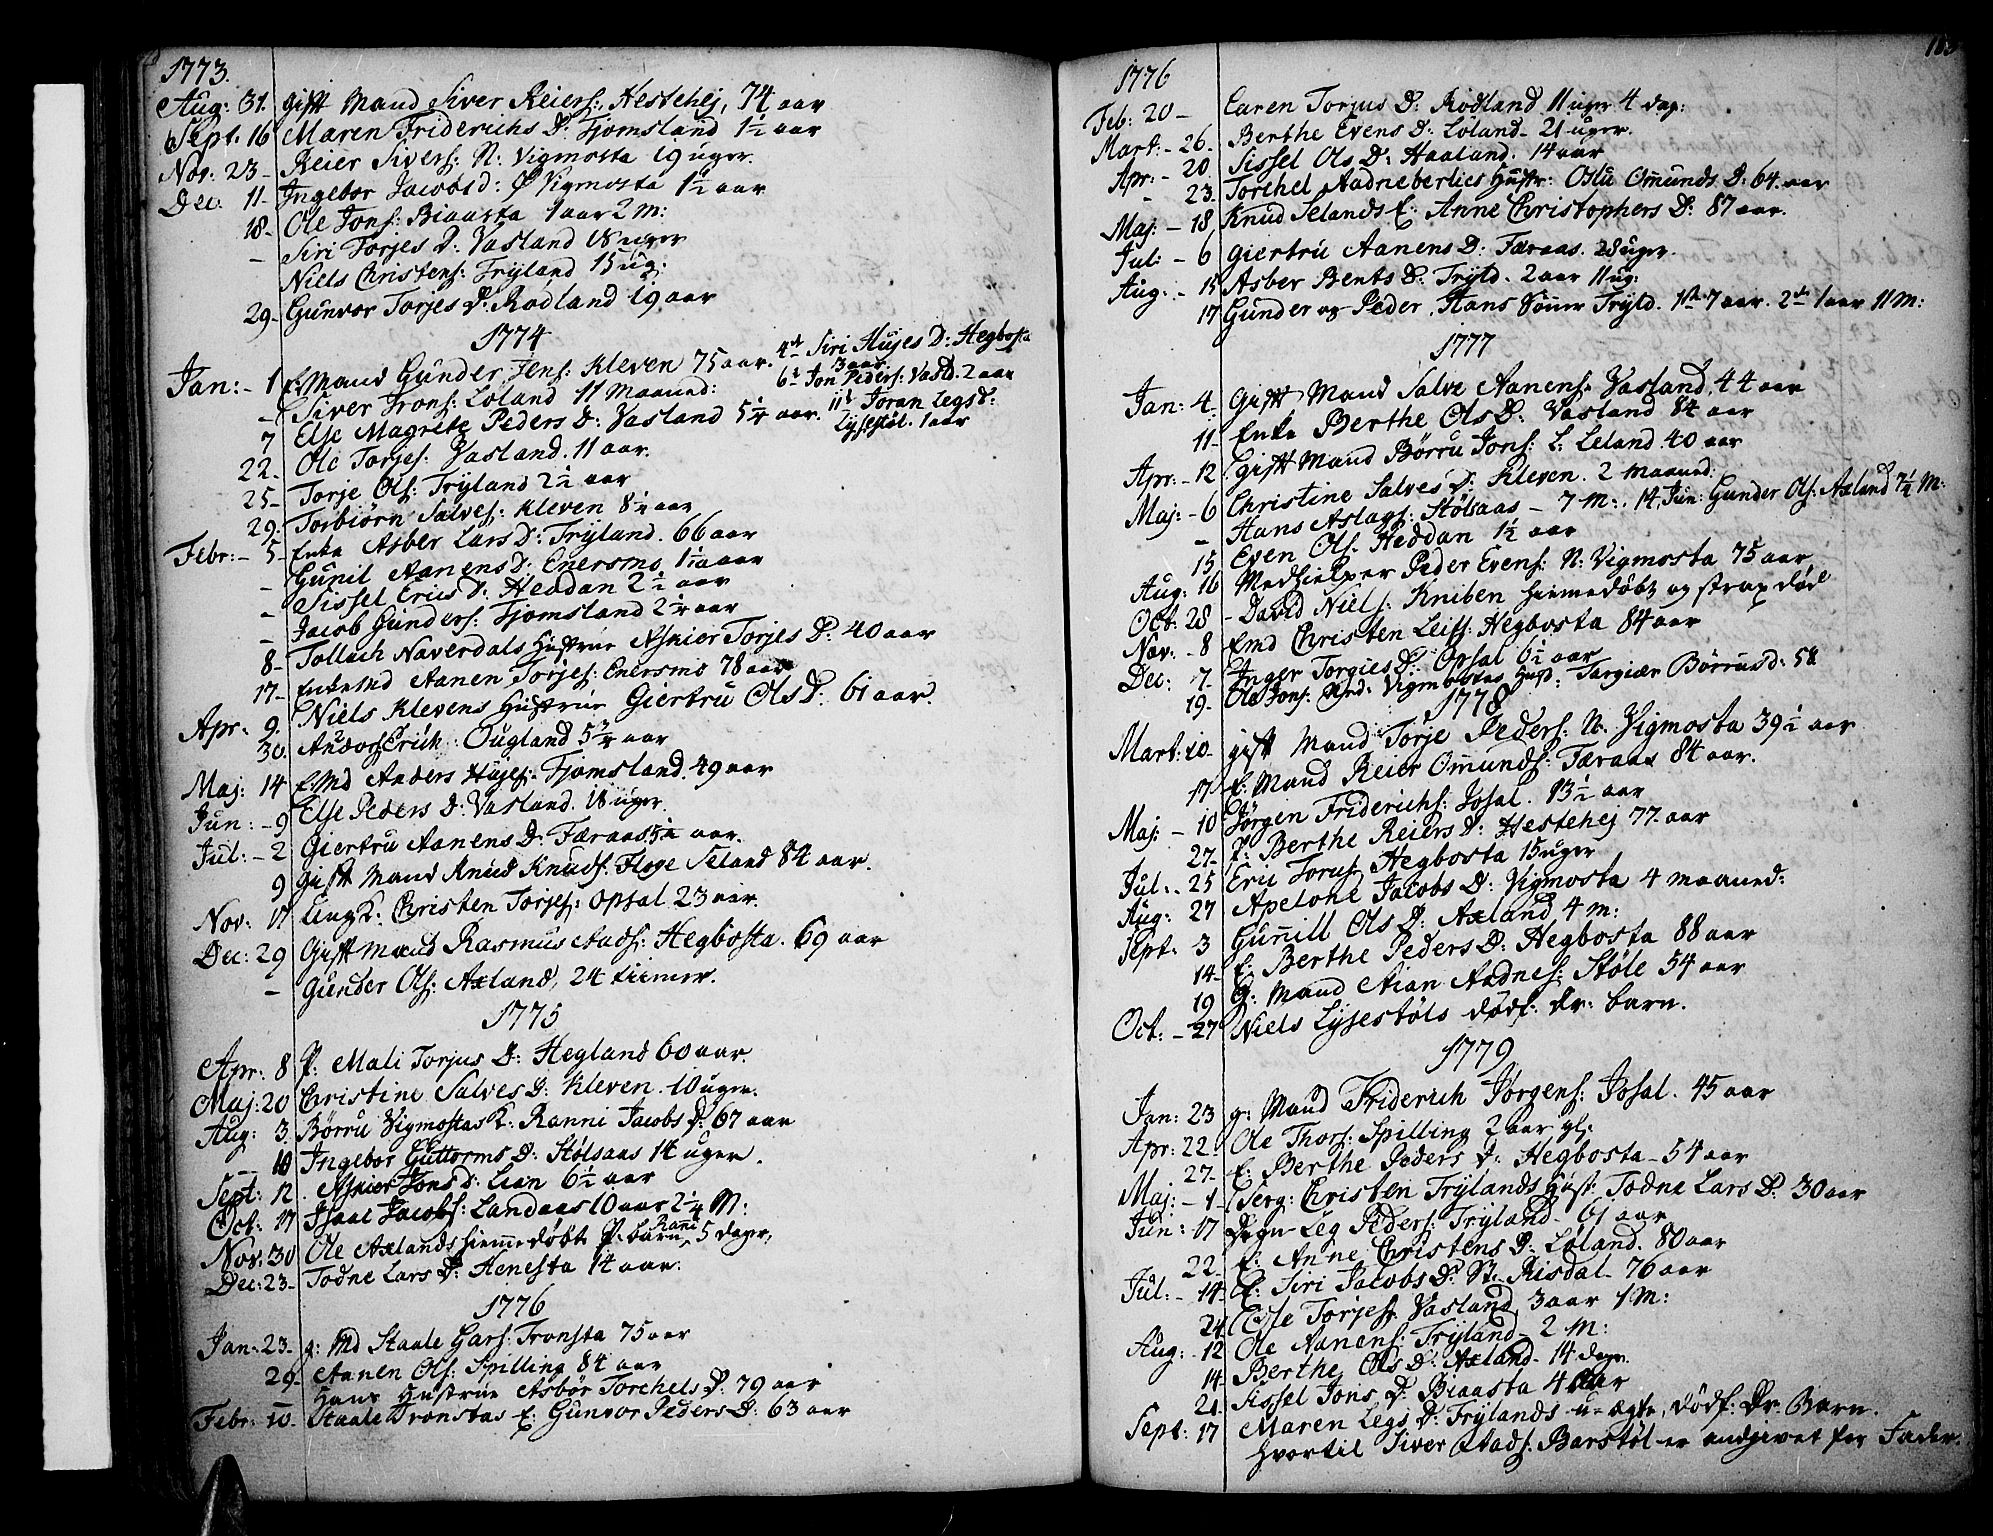 1773.
Aug: 31. gift Mand Siver Reiers: Hestehej, 74 aar
Sept. 16 Maren Friderichs D: Fjomsland 1½ aar
Nov: 23 - Reier Sivers: N: Vigmosta 19 uger.
Dec: 11 - Ingebor Jacobs d: Ø Vigmosta 1½ aar
18 - Ole Jons: Biaasta 1 aar 2 M:
- Siri Torjes D: Vasland 18 uger
Niels Christens: Tryland 15 ug:
29 - Gunvor Torjes D: Rødland 19 aar
1774
Jan: - 1 E. Mand Gunder Jens: Kleven 75 aar. 4de Siri Aujes D: Hegbosta 3 aar
- Siver Trons: Løland 11 Maaned: 6te Jon Peders: Vasld. 2 aar
7 Else Magrete Peders D: Vasland 5¼ aar. 11te Joran Legs d: Lysestøl. 1 aar
22. Ole Torjes: Vasland. 11 aar.
25 - Torje Ols: Tryland 2½ aar
29. Torbiørn Salves: Kleven 8½ aar
Febr: - 5 - Enke Asber Lars D: Tryland. 66 aar
- Gunil Aanens D: Enersmo 1½ aar
- Sissel Erics D: Heddan 2½ aar
- Jacob Gunders: Fjomsland 2¼ aar
8 - Tollach Naverdals Hustrue Asnier Torjes D: 40 aar
17 - Enkemd Aanen Torjes: Enersmo 78 aar
Apr: 9. Niels Klevens Hustrue Giertru Ols D: 61 aar.
30. Anders Erich: Ougland 5¾ aar
Maj: 14 E. Md Anders Aujes: Fjomsland. 49 aar
Jun: - 9 Else Peders D: Vasland. 18 uger.
Jul: - 2 Giertru Aanens D: Færaas 5½ aar.
9 gift Mand Knud Knuds: Floge Seland 84 aar.
Nov: 17 Ung K: Christen Torjes: Opsal 23 aar.
Dec: 29 Gift Mand Rasmus Aads: Hegbosta. 69 aar
- Gunder Ols: Axland, 24 timer.
1775
Apr: 8 P. Mali Torjus D: Hegland 60 aar.
Maj: 20 Christine Salves D: Kleven. 10 uger.
Aug: 3. Børru Vigmostas K: Ranni Jacobs D: 67 aar
- 10 Ingebor Guttorms D: Stølsaas 14 uger.
Sept: 12. Asnier Jons d: Lian 6½ aar
Oct: 17 Isaac Jacobs: Landaas 10 aar 2¼ M:
Nov: 30 Ole Axlands hiemmedøbte P. barn, Rani 5 dager,
Dec: 23 - Todne Lars D: Aenesta 14 aar.
1776
Jan: 23 - g: Md Staale Gars: Tronsta 75 aar
29 - Aanen Ols: Spilling 84 aar
- Hans Hustrue Asbør Torchels D: 79 aar
Febr: 10. Staale Tronstas E: Gunvor Peders D: 63 aar
1776
Feb: 20 - Caren Torjus D: Rødland 11 uger 4 dag:
Mart: - 26. Berthe Evens D: Løland - 21 uger.
Apr: - 20 Sissel Ols D: Haaland. 14 aar
- 23. Torchel Aadneberlies Hustr: Oslu Omunds D: 64 aar
Maj: - 18, Knud Selands E: Anne Christophers D: 87 aar.
Jul: - 6 giertru Aanens D: Færaas. 28 uger.
Aug: - 15 Asber Bents D: Tryld. 2 aar 11 ug:
17 Gunder og Peder, Hans Sønner Tryld. 1ste 7 aar. 2den 1 aar 11 M:
1777
Jan: 4. gift Mand Salve Aanens: Vasland, 44 aar
11. Enke Berthe Ols D: Vasland 84 aar
Apr: - 12. gift Mand Børru Jons: L. Leland 40 aar
Maj: - 6 Christine Salves D: Kleven. 2 Maaned:
- Hans Aslags: Stølsaas - 7 M:. 14 Jun: Gunder Ols: Axland 7¼ M:
15 Even Ols: Heddan 1½ aar
Aug: 16 Medhielper Peder Evens: N: Vigmosta 75 aar
Oct: 28 - David Niels: Kniben hiemedøbt og strax død
Nov: - 8 Emd Christen Leifs: Hegbosta 84 aar
Dec: 7 - Inger Torgies D: Opsal 6½ aar
19. Ole Jons: Vigmostas Hust: Torgiær Børrus d: 58
1778
Mart: 10 - gift Mand Torje Peders: N. Vigmosta 39½ aar
17 E: Mand Reier Omunds: Færaas 84 aar.
Maj: - 10 Jørgen Friderichs: Josal. 13½ aar
27 - P: Berthe Reiers D: Hestehej 77 aar
Jul: - 25 Eric Torus: Hegbosta 15 uger
Aug: 27 Apelone Jacobs D: Vigmosta 4 maaned:
Sept: 3 Gunnill Ols D: Axland 4 M:
14 - E: Berthe Peders D: Hegbosta 88 aar
19 G: Mand Aian Aadnes: Støle 54 aar
Oct: - 27 Niels Lysestøls dødf: Dr: barn.
1779
Jan: 23 g: Mand Friderich Jørgens: Josal. 45 aar
Apr: 22. Ole Thors: Spilling 2 aar gl:
27 - E: Berthe Peders D: Hegbosta - 54 aar
Maj: - 1 - Serg: Christen Trylands Hust: Todne Lars D. 30 aar
Jun: 17 Degn Leg Peders: Tryland - 61 aar
22 - E: Anne Christens D: Løland. 80 aar
Jul: - 14 E: Siri Jacobs D: St. Risdal - 76 aar
24 Else Torjes: Vasland, 3 aar 1 M:
Aug: - 12 Ole Aanens: Tryland - 2 M:
14 - Berthe Ols D: Axland - 14 dage.
21. Sissel Jons D: Biaasta 4 aar
Sept: 17 Maren Legs D: Trylands u-ægte, dødf: Dr. Barn.
hvortil Siver Aads: Barstøl er angivet for Fader.